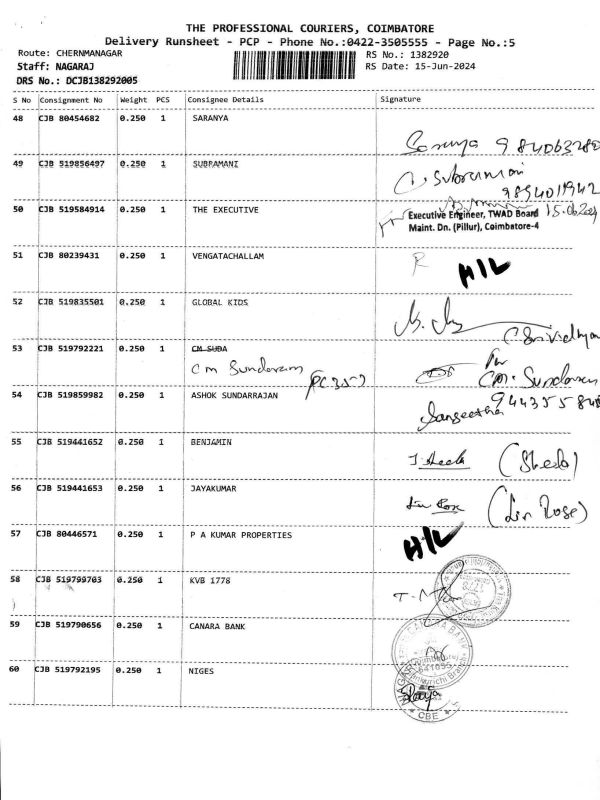 THE PROFESSIONAL COURIERS, COIMBATORE
Delivery Runsheet - PCP - Phone No.:0422-3505555 - Page No.:5
Route: CHERNMANAGAR RS No.: 1382920
Staff: NAGARAJ RS Date: 15-Jun-2024
DRS No.: DCJB138292005
S No Consignment No Weight PCS Consignee Details Signature
48 CJB 80454682 0.250 1 SARANYA
Saranya 984063280
49 CJB 519856497 0.250 1 SUBRAMANI
Subramani
9894011942
50 CJB 519584914 0.250 1 THE EXECUTIVE
Executive Engineer, TWAD Board 15.06.2024
Maint. Dn. (Pillur), Coimbatore-4
51 CJB 80239431 0.250 1 VENGATACHALLAM
R H/L
52 CJB 519835501 0.250 1 GLOBAL KIDS
C Srividhya
53 CJB 519792221 0.250 1 CM SUDA
for
Cm Sundaram CM. Sundaram
54 CJB 519859982 0.250 1 ASHOK SUNDARRAJAN
Sangeetha
55 CJB 519441652 0.250 1 BENJAMIN
(Sheela)
56 CJB 519441653 0.250 1 JAYAKUMAR
Lin Rose (Lin Rose)
57 CJB 80446571 0.250 1 P A KUMAR PROPERTIES
H/L
58 CJB 519799703 0.250 1 KVB 1778
59 CJB 519790656 0.250 1 CANARA BANK
CANARA BANK
641035
60 CJB 519792195 0.250 1 NIGES
CBE